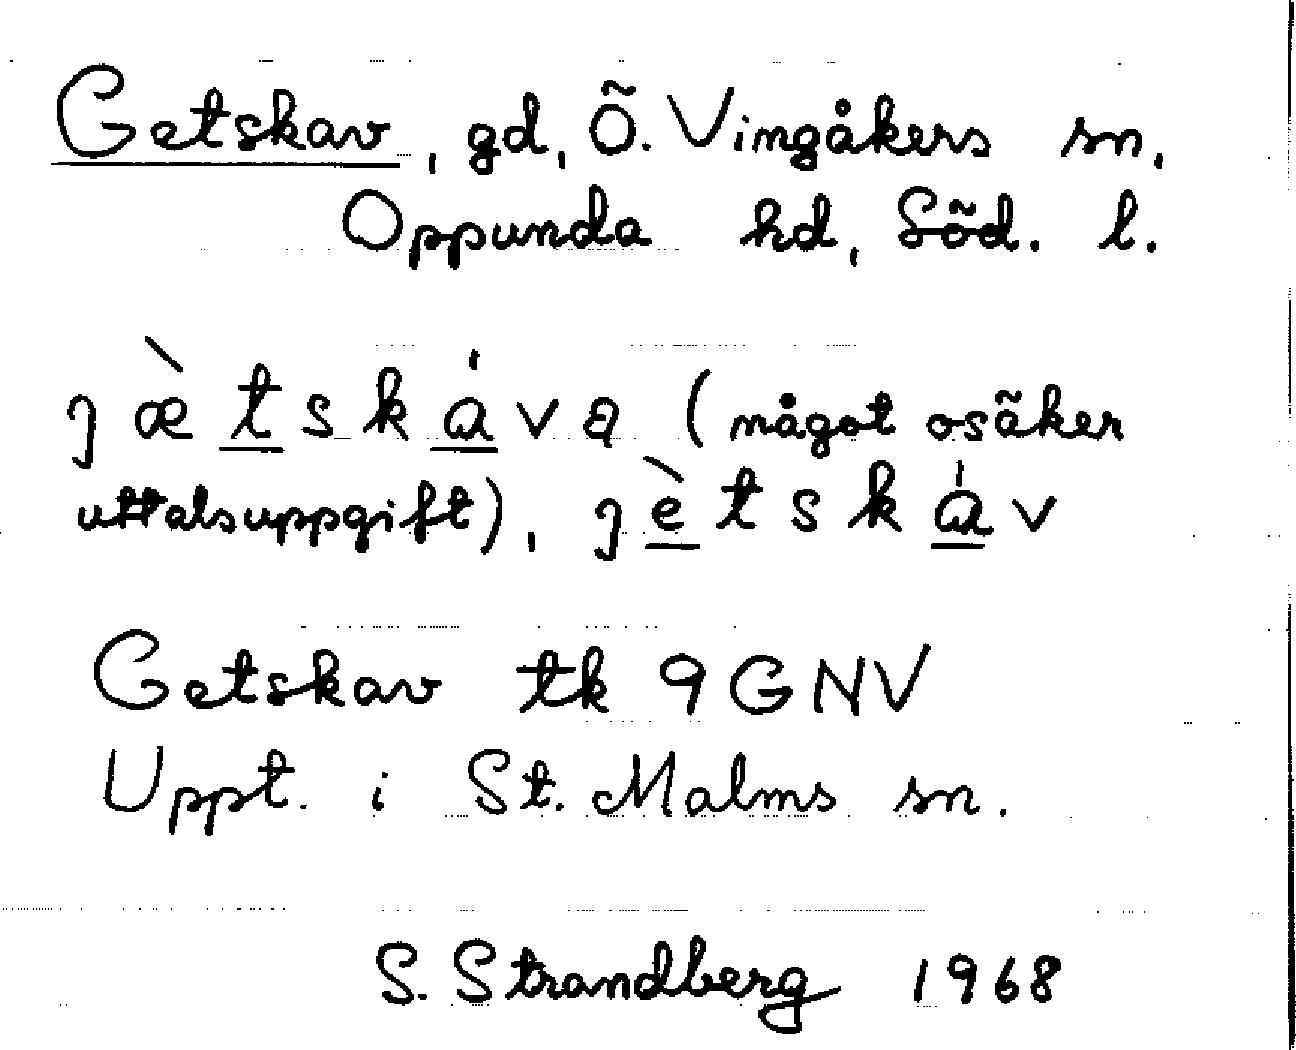 Getskav, gd, Õ. Vingåkers sn,
Oppunda hd, Sõd. l.
ȷæ̀tskáva (något osãker
uttalsuppgift), ȷètskáv
Getskav tk 9GNV
Uppt. i St. Malms sn.
S. Strandberg 1968